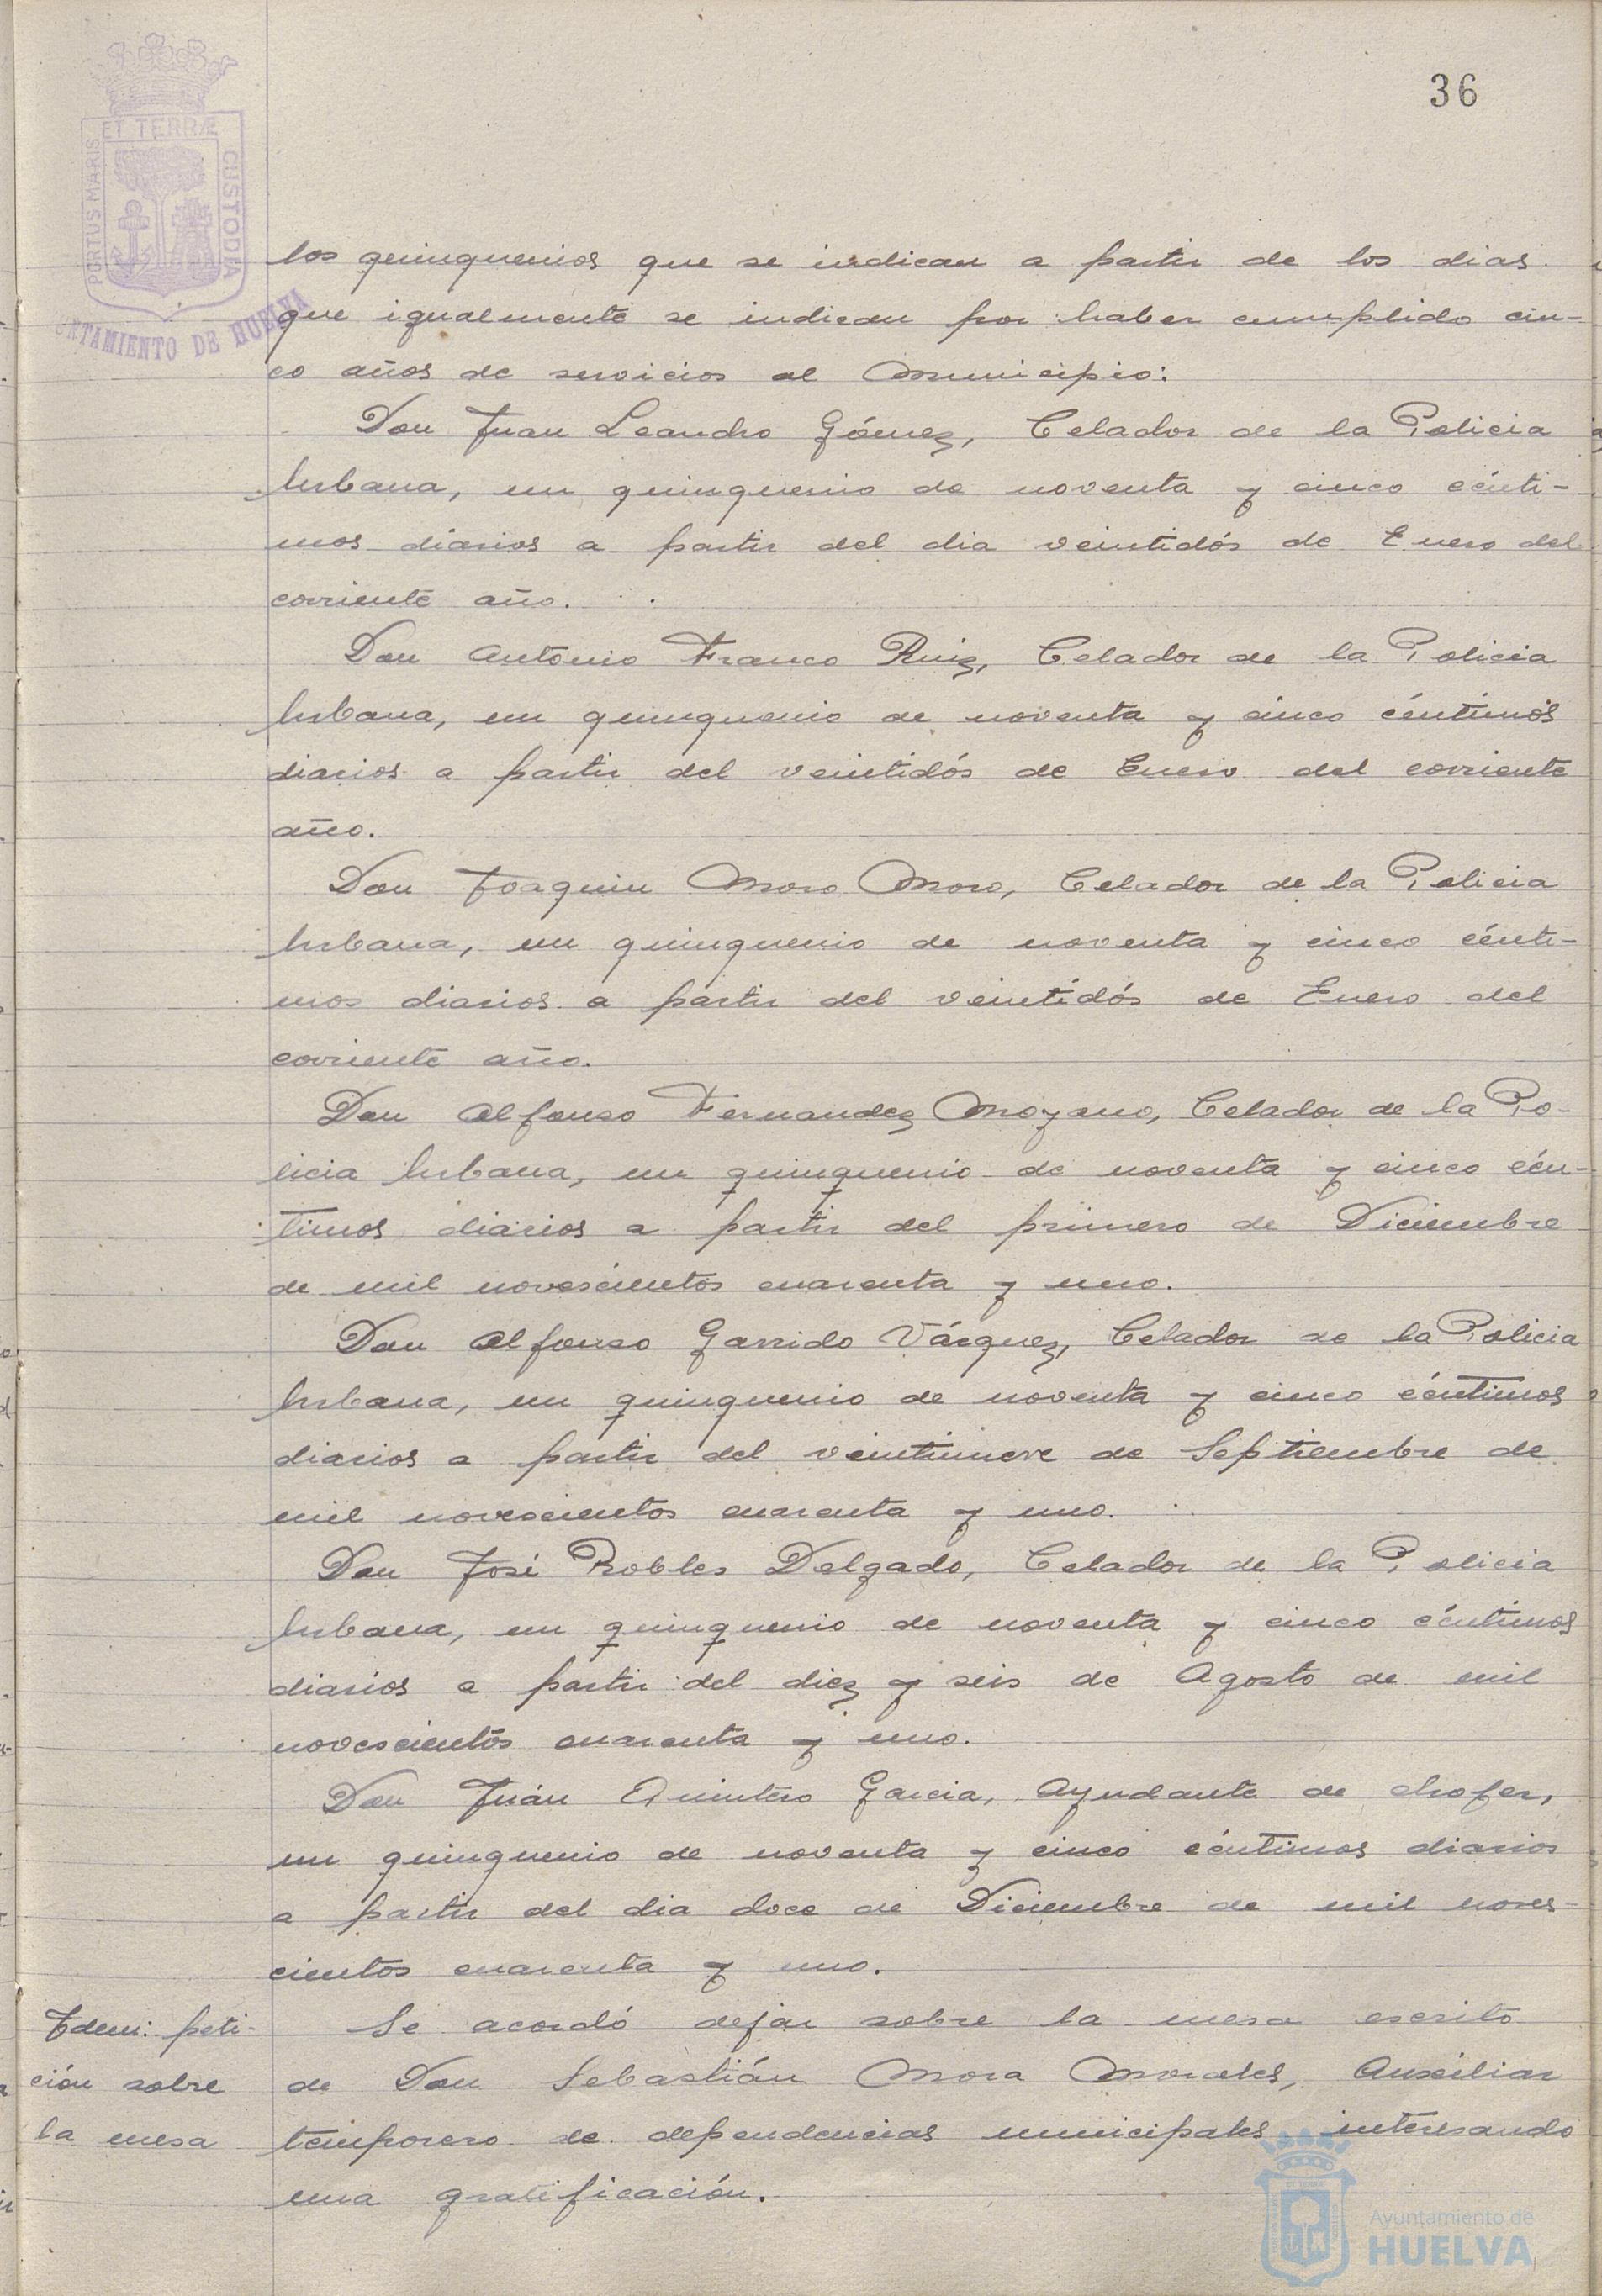 36
ET TERRÆ
PORTUS MARIS
CUSTODIA
AYUNTAMIENTO DE HUELVA
los quinquenios que se indican a partir de los dias
que igualmente se indican por haber cumplido cin-
co años de servicios al Municipio:
Don Juan Leandro Gómez, Celador de la Policia
Urbana, un quinquenio de noventa y cinco cénti-
mos diarios a partir del dia veintidós de Enero del
corriente año.
Don Antonio Franco Ruiz, Celador de la Policia
Urbana, un quinquenio de noventa y cinco céntimos
diarios a partir del veintidós de Enero del corriente
año.
Don Joaquin Moro Moro, Celador de la Policia
Urbana, un quinquenio de noventa y cinco cénti-
mos diarios a partir del veintidós de Enero del
corriente año.
Don Alfonso Fernandez Moyano, Celador de la Po-
licia Urbana, un quinquenio de noventa y cinco cén-
timos diarios a partir del primero de Diciembre
de mil novescientos cuarenta y uno.
Don Alfonso Garrido Vázquez, Celador de la Policia
Urbana, un quinquenio de noventa y cinco céntimos
diarios a partir del veintinueve de Septiembre de
mil novescientos cuarenta y uno.
Don José Robles Delgado, Celador de la Policia
Urbana, un quinquenio de noventa y cinco céntimos
diarios a partir del diez y seis de Agosto de mil
novescientos cuarenta y uno.
Don Juán Quintero Garcia, Ayudante de chofer,
un quinquenio de noventa y cinco céntimos diarios
a partir del dia doce de Diciembre de mil noves-
cientos cuarenta y uno.
Idem: peti-
ción sobre
la mesa
Se acordó dejar sobre la mesa escrito
de Don Sebastián Mora Morales, Auxiliar
temporero de dependencias municipales interesando
una gratificación.
Ayuntamiento de
HUELVA